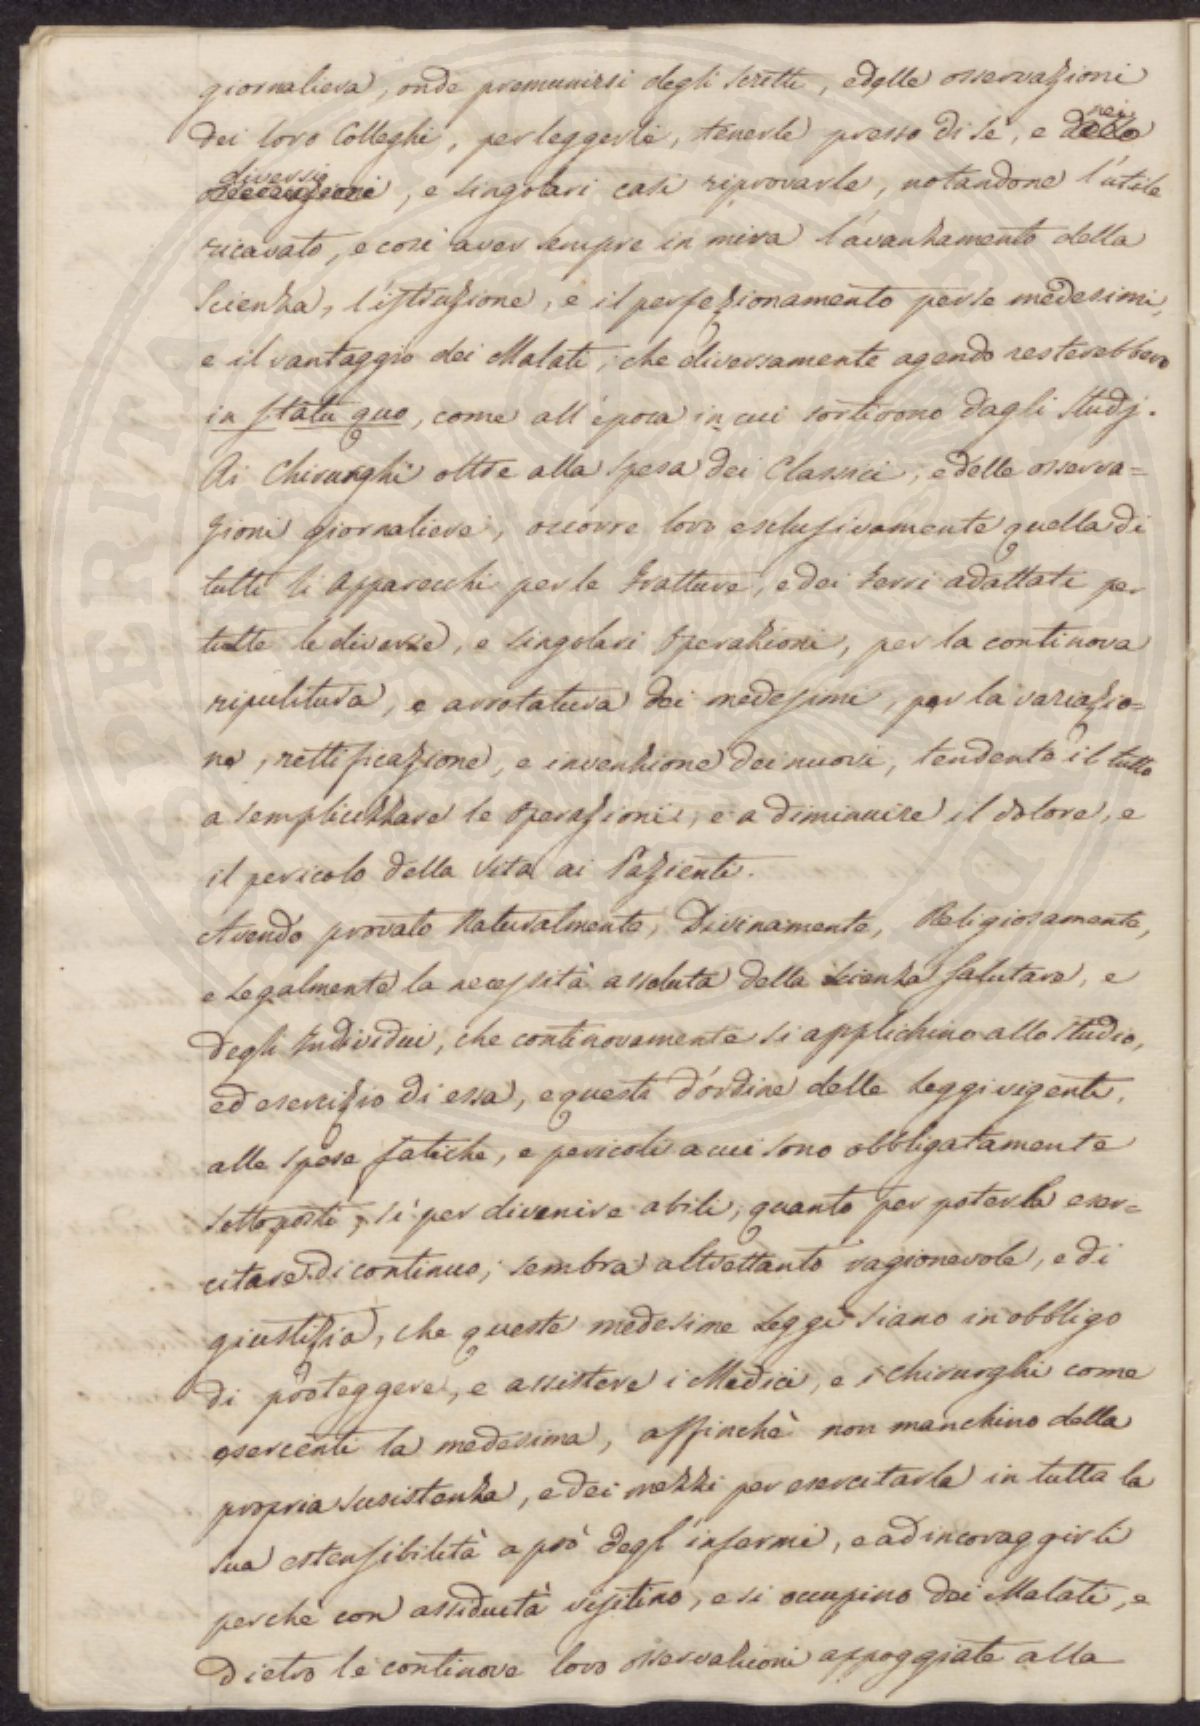 giornaliera, onde premunirsi degli scritti, edelle osservazioni
dei loro Colleghi, perleggerli, tenerle presso di se, e nei
diversi, e singolari casi riprovarle, notandone l'utile
ricavato, e cosi aver sempre in mira l'avanzamento della
Scienza, l'istruzione, e il perfezionamento perse medesimi,
e il vantaggio dei Malati, che diversamente agendo resterebbero
in statu quo, come all'epoca in cui sortirono dagli studj.
Ai Chirurghi oltre alla spesa dei Classici, edelle osserva=
zioni giornaliere, occorre loro esclusivamente quella di
tutti li apparecchi per le fratture, e dei ferri adattati per
tutte le diverse, e singolari operazioni, per la continova
ripulitura, e arrotatura dei medesimi, per la variazio=
ne, rettificazione, e invenzione dei nuovi, tendente il tutto
a semplicizzare le operazioni, e a diminuire il dolore, e
il pericolo della vita ai Pazienti.
Avendo provato Naturalmente, Divinamente, Religiosamente,
e Legalmente la necessità assoluta della Scienza salutare, e
degli Individui, che continovamente si applichino allo studio,
ed esercizio di essa, e questi d'ordine delle Leggi vigenti,
alle spese fatiche, e pericoli a cui sono obbligatamente
sottoposti, si per divenire abili, quanto per poterla eser=
citare di continuo, sembra altrettanto ragionevole, e di
giustizia, che queste medesime Leggi siano in obbligo
di proteggere, e assistere i Medici, e i Chirurghi come
esercenti la medesima, affinchè non manchino della
propria susistenza, e dei mezzi per esercitarla in tutta la
sua estensibilità a prò degl'infermi, e ad incoraggirli
perche con assiduità visitino, e si occupino dei Malati, e
dietro le continove loro osservazioni appoggiate alla